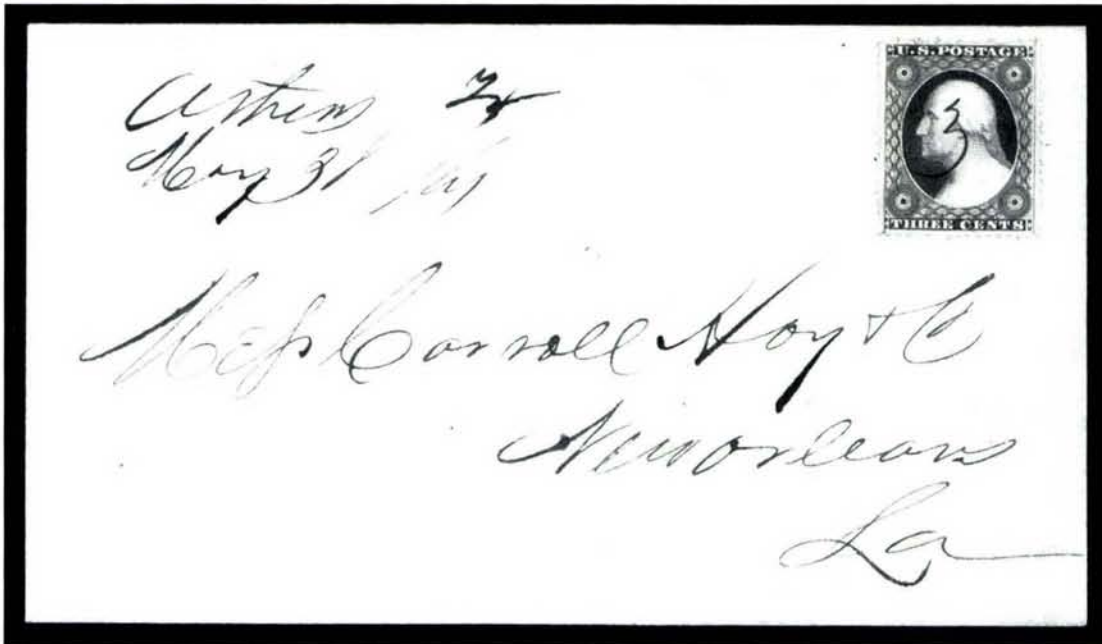 Athens Tx
May 31 /61
U.S. POSTAGE
3
THREE CENTS
Mess Carroll Hoy & Co
New Orleans
La